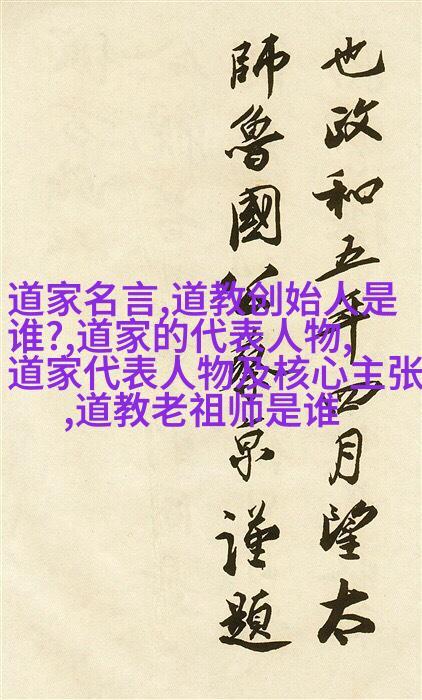 也政和五年四月望太
師魯國公蔡京謹題
道家名言,道教创始人是
谁?,道家的代表人物,
道家代表人物及核心主张
,道教老祖师是谁